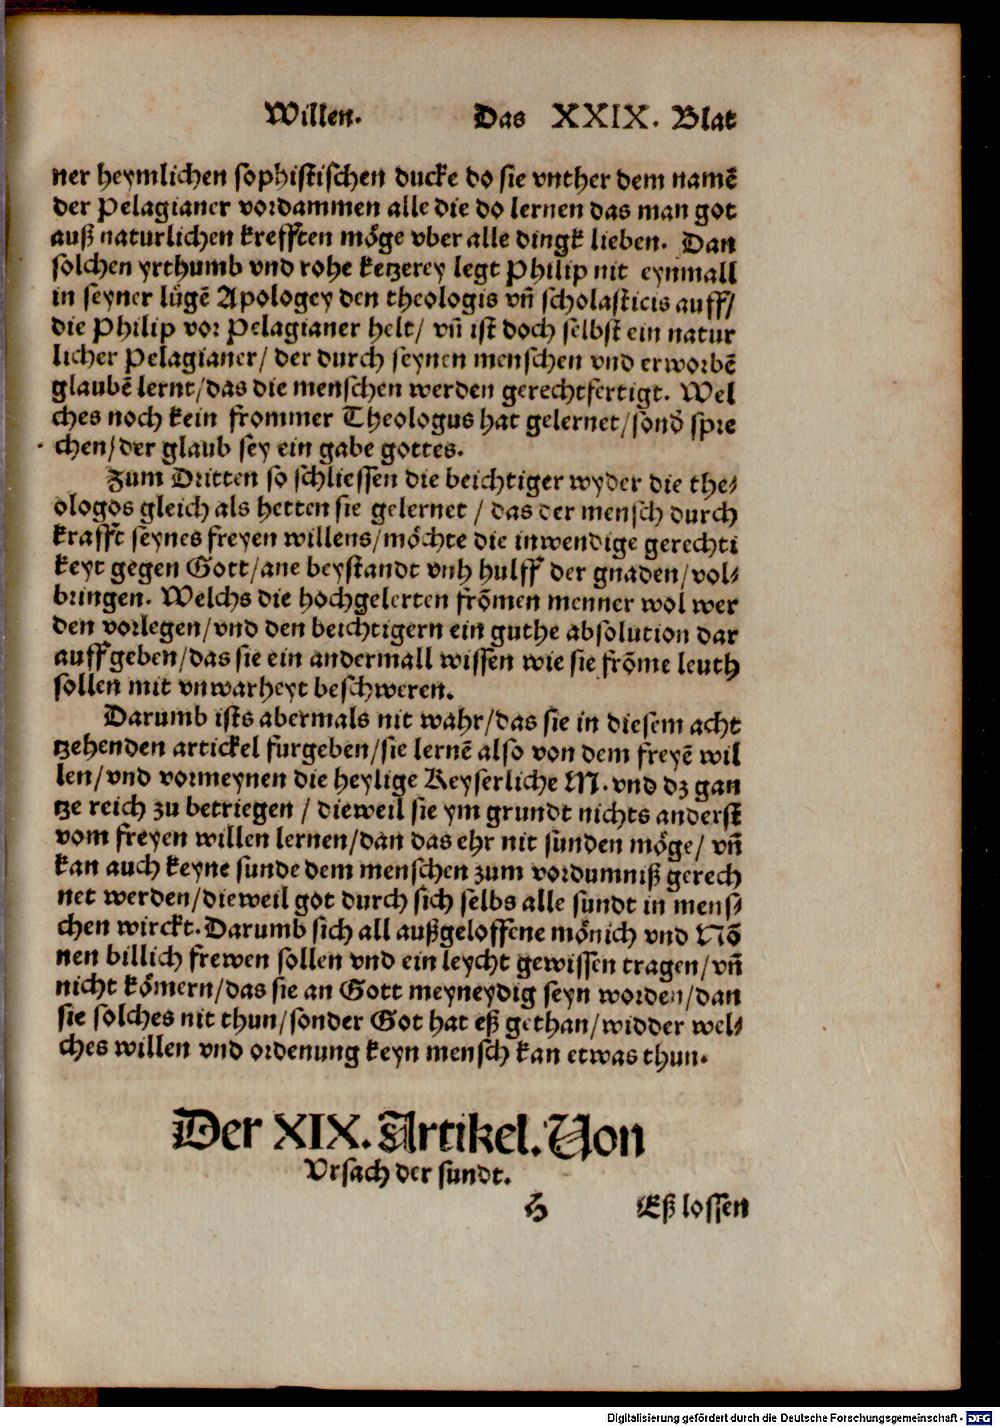 Willen. Das XXIX. Blat
ner heymlichen sophistischen ducke do sie vnther dem namē
der Pelagianer vordammen alle die do lernen das man got
auß naturlichen krefften möge vber alle dingk lieben. Dan
solchen yrthumb vnd rohe ketzerey legt Philip nit eynmall
in seyner lügē Apologey den theologis vn̄ scholasticis auff/
die Philip vor Pelagianer helt/ vn̄ ist doch selbst ein natur
licher Pelagianer/ der durch seynen menschen vnd erworbē
glaubē lernt/das die menschen werden gerechtfertigt. Wel
ches noch kein frommer Theologus hat gelernet/sond̄ spre
chen/der glaub sey ein gabe gottes.
Zum Dritten so schliessen die beichtiger wyder die the/
ologos gleich als hetten sie gelernet / das der mensch durch
krafft seynes freyen willens/möchte die inwendige gerechti
keyt gegen Gott/ane beystandt vnh hulff der gnaden/vol/
bringen. Welchs die hochgelerten frōmen menner wol wer
den vorlegen/vnd den beichtigern ein guthe absolution dar
auff geben/das sie ein andermall wissen wie sie frōme leuth
sollen mit vnwarheyt beschweren.
Darumb ists abermals nit wahr/das sie in diesem acht
tzehenden artickel furgeben/sie lernē also von dem freyē wil
len/vnd vormeynen die heylige Keyserliche M. vnd dz gan
tze reich zu betriegen / dieweil sie ym grundt nichts anderst
vom freyen willen lernen/dan das ehr nit sunden möge/ vn̄
kan auch keyne sunde dem menschen zum vordumniß gerech
net werden/dieweil got durch sich selbs alle sundt in mens/
chen wirckt. Darumb sich all außgeloffene mönich vnd Nō
nen billich frewen sollen vnd ein leycht gewissen tragen/vn̄
nicht kömern/das sie an Gott meyneydig seyn worden/dan
sie solches nit thun/sonder Got hat eß gethan/widder wel/
ches willen vnd ordenung keyn mensch kan etwas thun.
Der XIX. Artikel. Von
Vrsach der sundt.
H Eß lossen
Digitalisierung gefördert durch die Deutsche Forschungsgemeinschaft - DFG